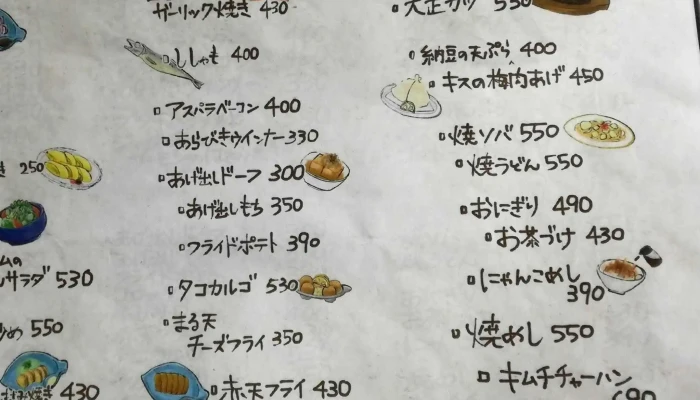 き 250
ムの
サラダ 530
め 550
焼き 430
ガーリック焼き 430
ししゃも 400
アスパラベーコン 400
あらびきウインナー 330
あげ出しドーフ 300
あげ出しもち 350
フライドポテト 390
タコカルゴ 530
まる天
チーズフライ 350
赤天フライ 430
大正カツ 530
納豆の天ぷら 400
キスの梅肉あげ 450
焼ソバ 550
焼うどん 550
おにぎり 490
お茶づけ 430
にゃんこめし
390
焼めし 550
キムチチャーハン
690